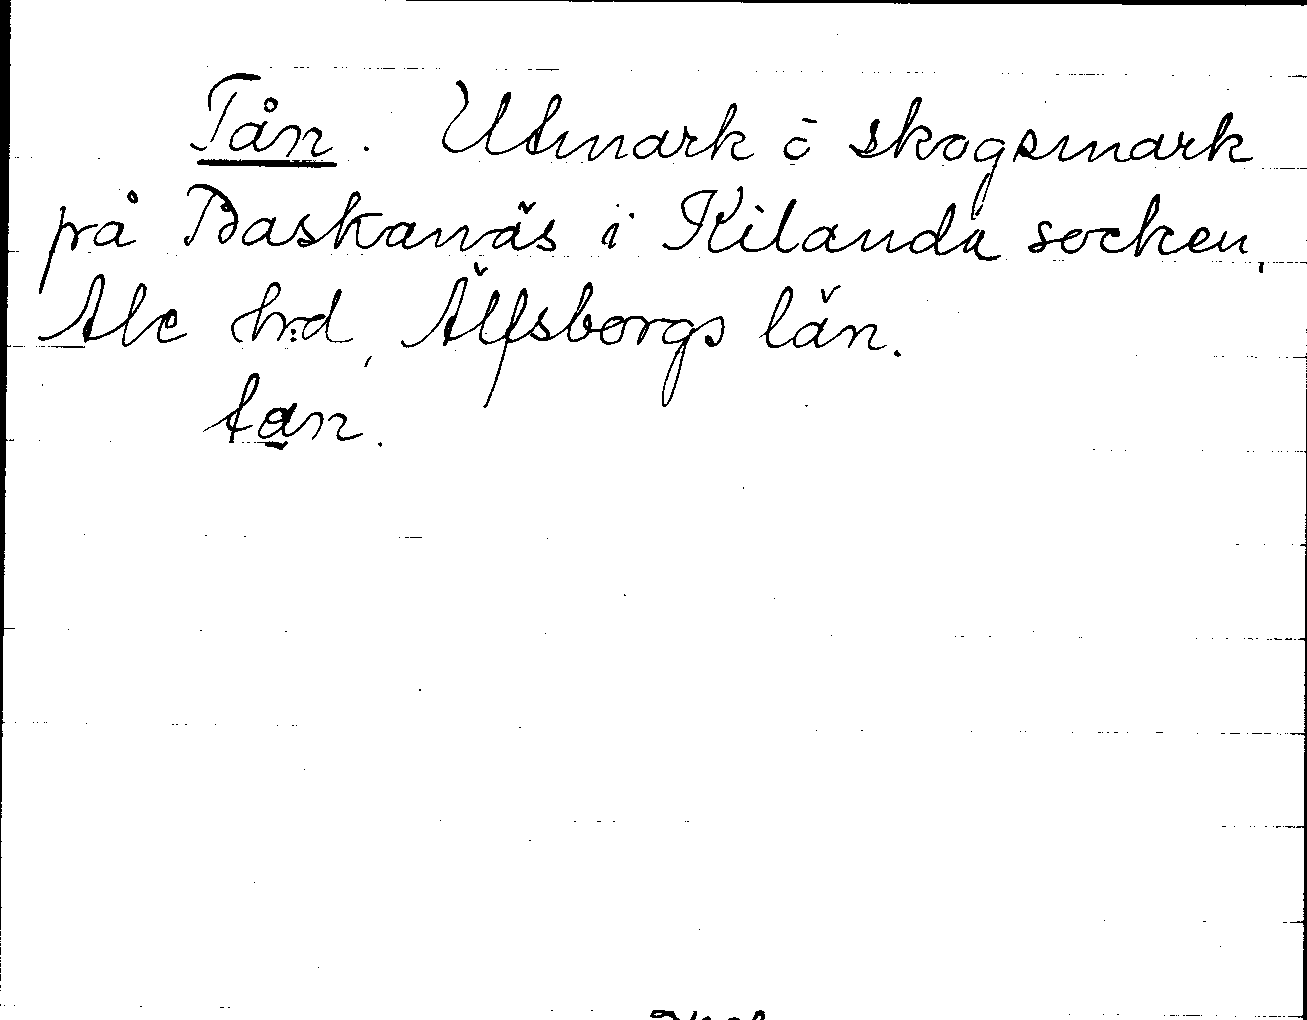 Tån. Utmark o skogsmark
på Baskanäs i Kilanda socken,
Ale hrd, Älfsborgs län.
tan.